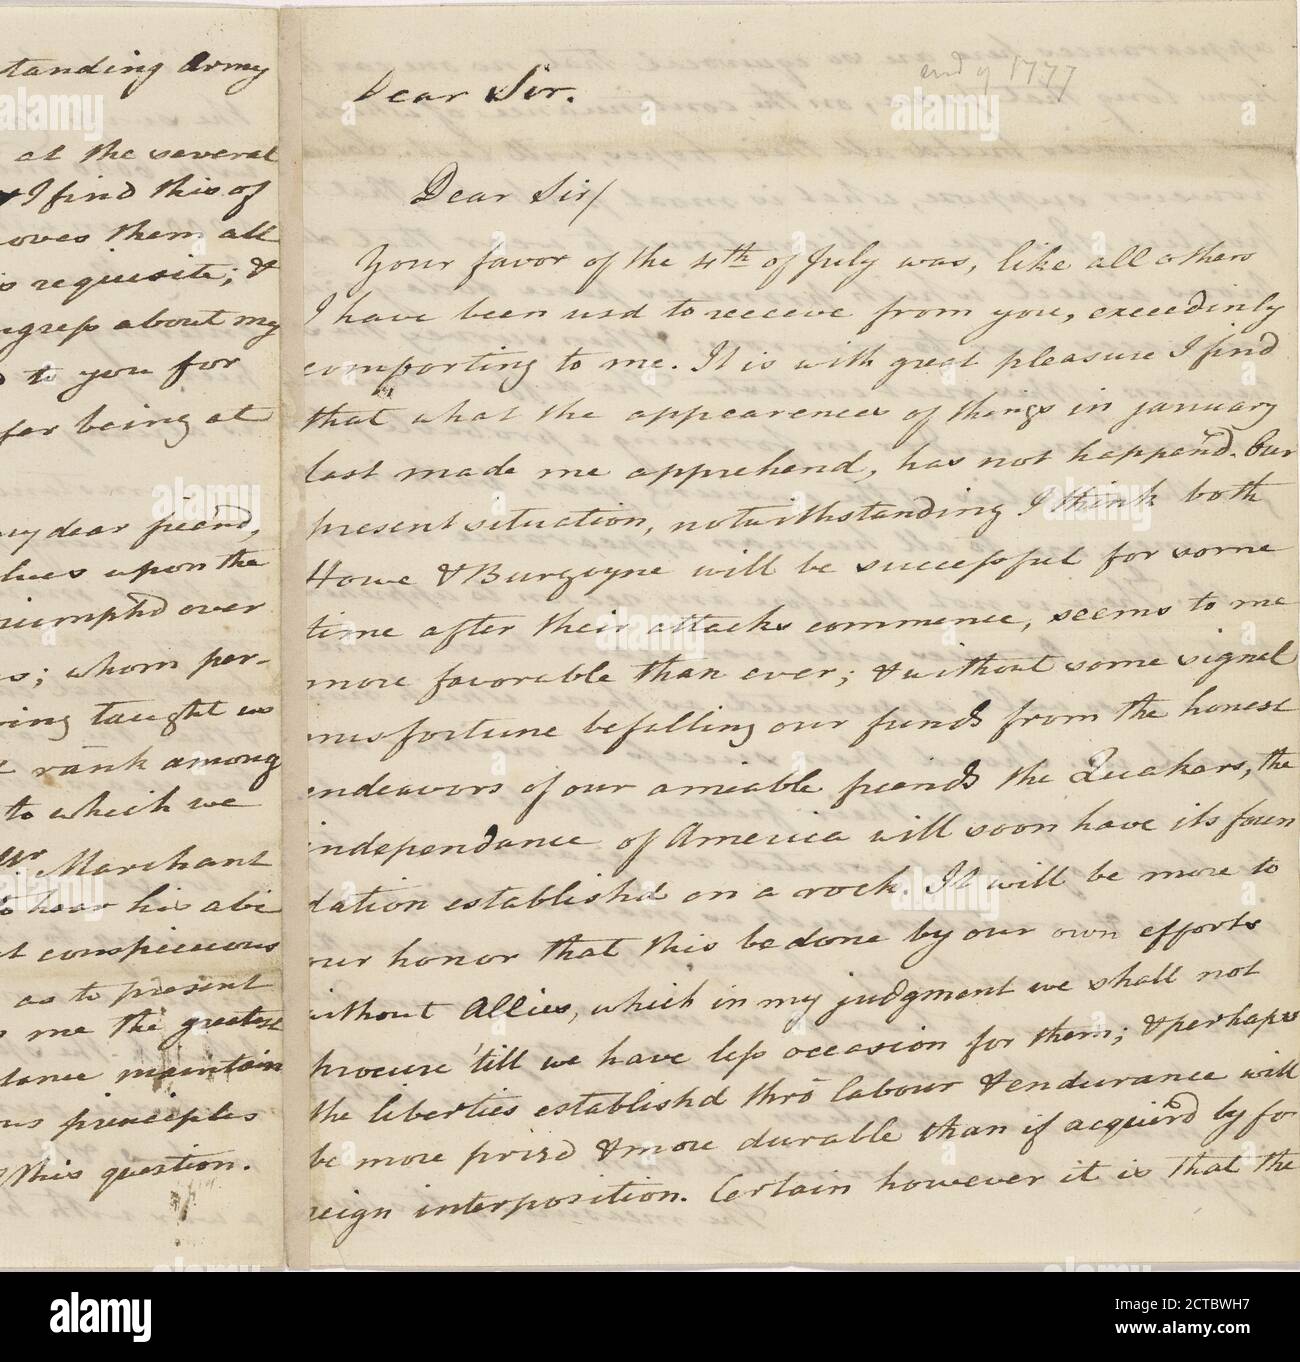 tanding army
at the several
I find this of
oves them all
s requisite; &
ngress about my
to you for
for being at
my dear friend,
lues upon the
riumph'd over
s; whom per-
ring taught us
t rank among
to which we
Mr. Marchant
to hear his abi
t conspicuous
as to present
s me the greatest
tance maintain
ous principles
this question.
Dear Sir.
end of 1777
Dear Sir/
Your favor of the 4th of July was, like all others
I have been usd to receeve from you, exceedinly
comforting to me. It is with great pleasure I find
that what the appearences of things in january
last made me apprehend, has not happen'd. Our
present situation, notwithstanding I think both
Howe & Burgoyne will be successful for some
time after their attacks commence, seems to me
more favorable than ever; & without some signal
misfortune befalling our funds from the honest
endeavors of our amiable friends the Quakers, the
independance of America will soon have its foun
dation establishd on a rock. It will be more to
our honor that this be done by our own efforts
without Allies, which in my judgment we shall not
procure 'till we have less occasion for them; & perhaps
the liberties establishd thro labour & endurance will
be more prizd & more durable than if acquird by fo
reign interposition. Certain however it is that the
alamy
Image ID: 2CTBWH7
www.alamy.com